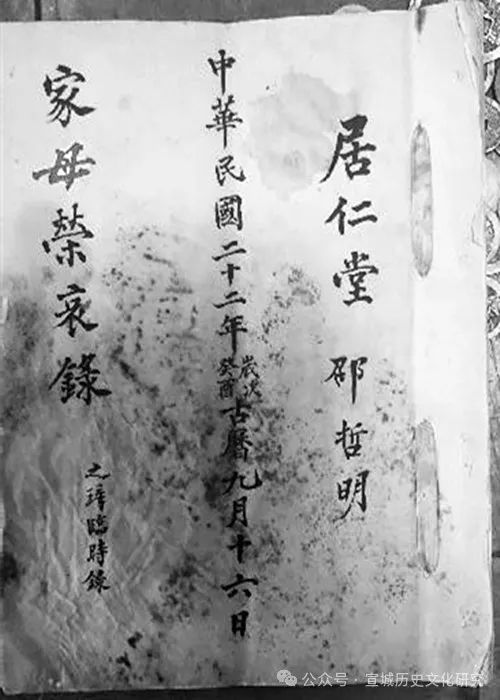 居仁堂 邵哲明
中華民國二十二年歲次癸酉古曆九月十六日
家母榮哀錄
之璋臨時錄
公众号·宣城历史文化研究